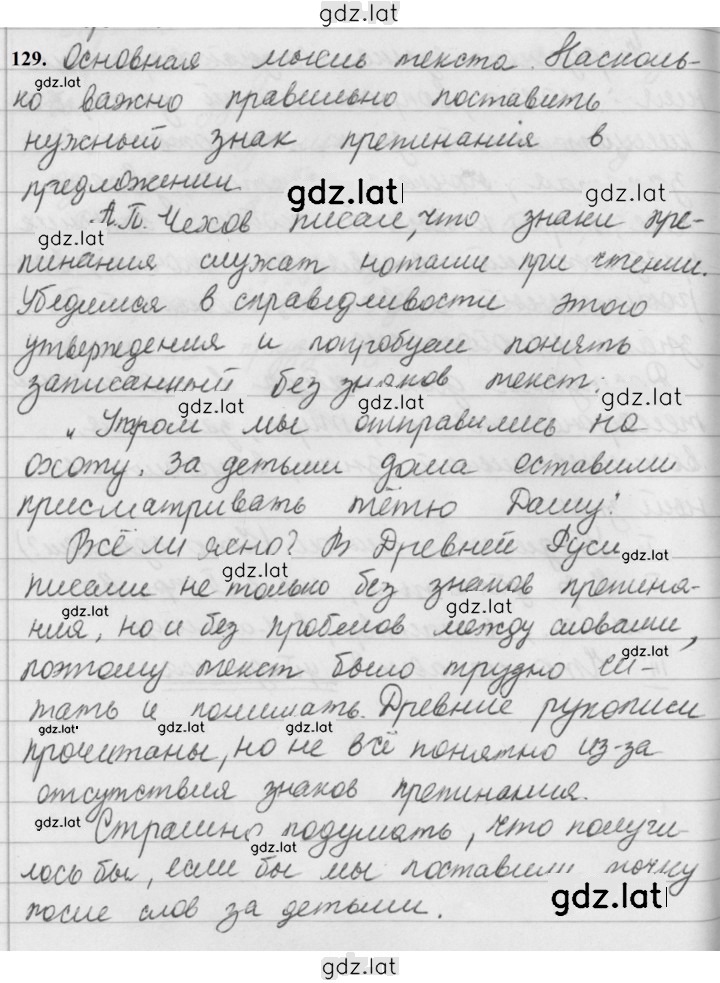 gdz.lat
129. Основная мысль текста. Насколь-
gdz.lat
ко важно правильно поставить
нужный знак препинания в
предложении.
gdz.lat
А.П. Чехов писал, что знаки пре-
gdz.lat
пинания служат нотами при чтении.
Убедимся в справедливости этого
утверждения и попробуем понять
записанный без знаков текст:
gdz.lat gdz.lat
„Утром мы отправились на
охоту. За детьми дома оставили
присматривать тётю Дашу.
Всё ли ясно? В Древней Руси
gdz.lat gdz.lat
писали не только без знаков препина-
gdz.lat gdz.lat
ния, но и без пробелов между словами,
gdz.lat
поэтому текст было трудно чи-
тать и понимать. Древние рукописи
gdz.lat gdz.lat gdz.lat gdz.lat
прочитаны, но не всё понятно из-за
отсутствия знаков препинания.
gdz.lat
Страшно подумать, что получи-
лось бы, если бы мы поставили точку
gdz.lat
после слов за детьми.
gdz.lat